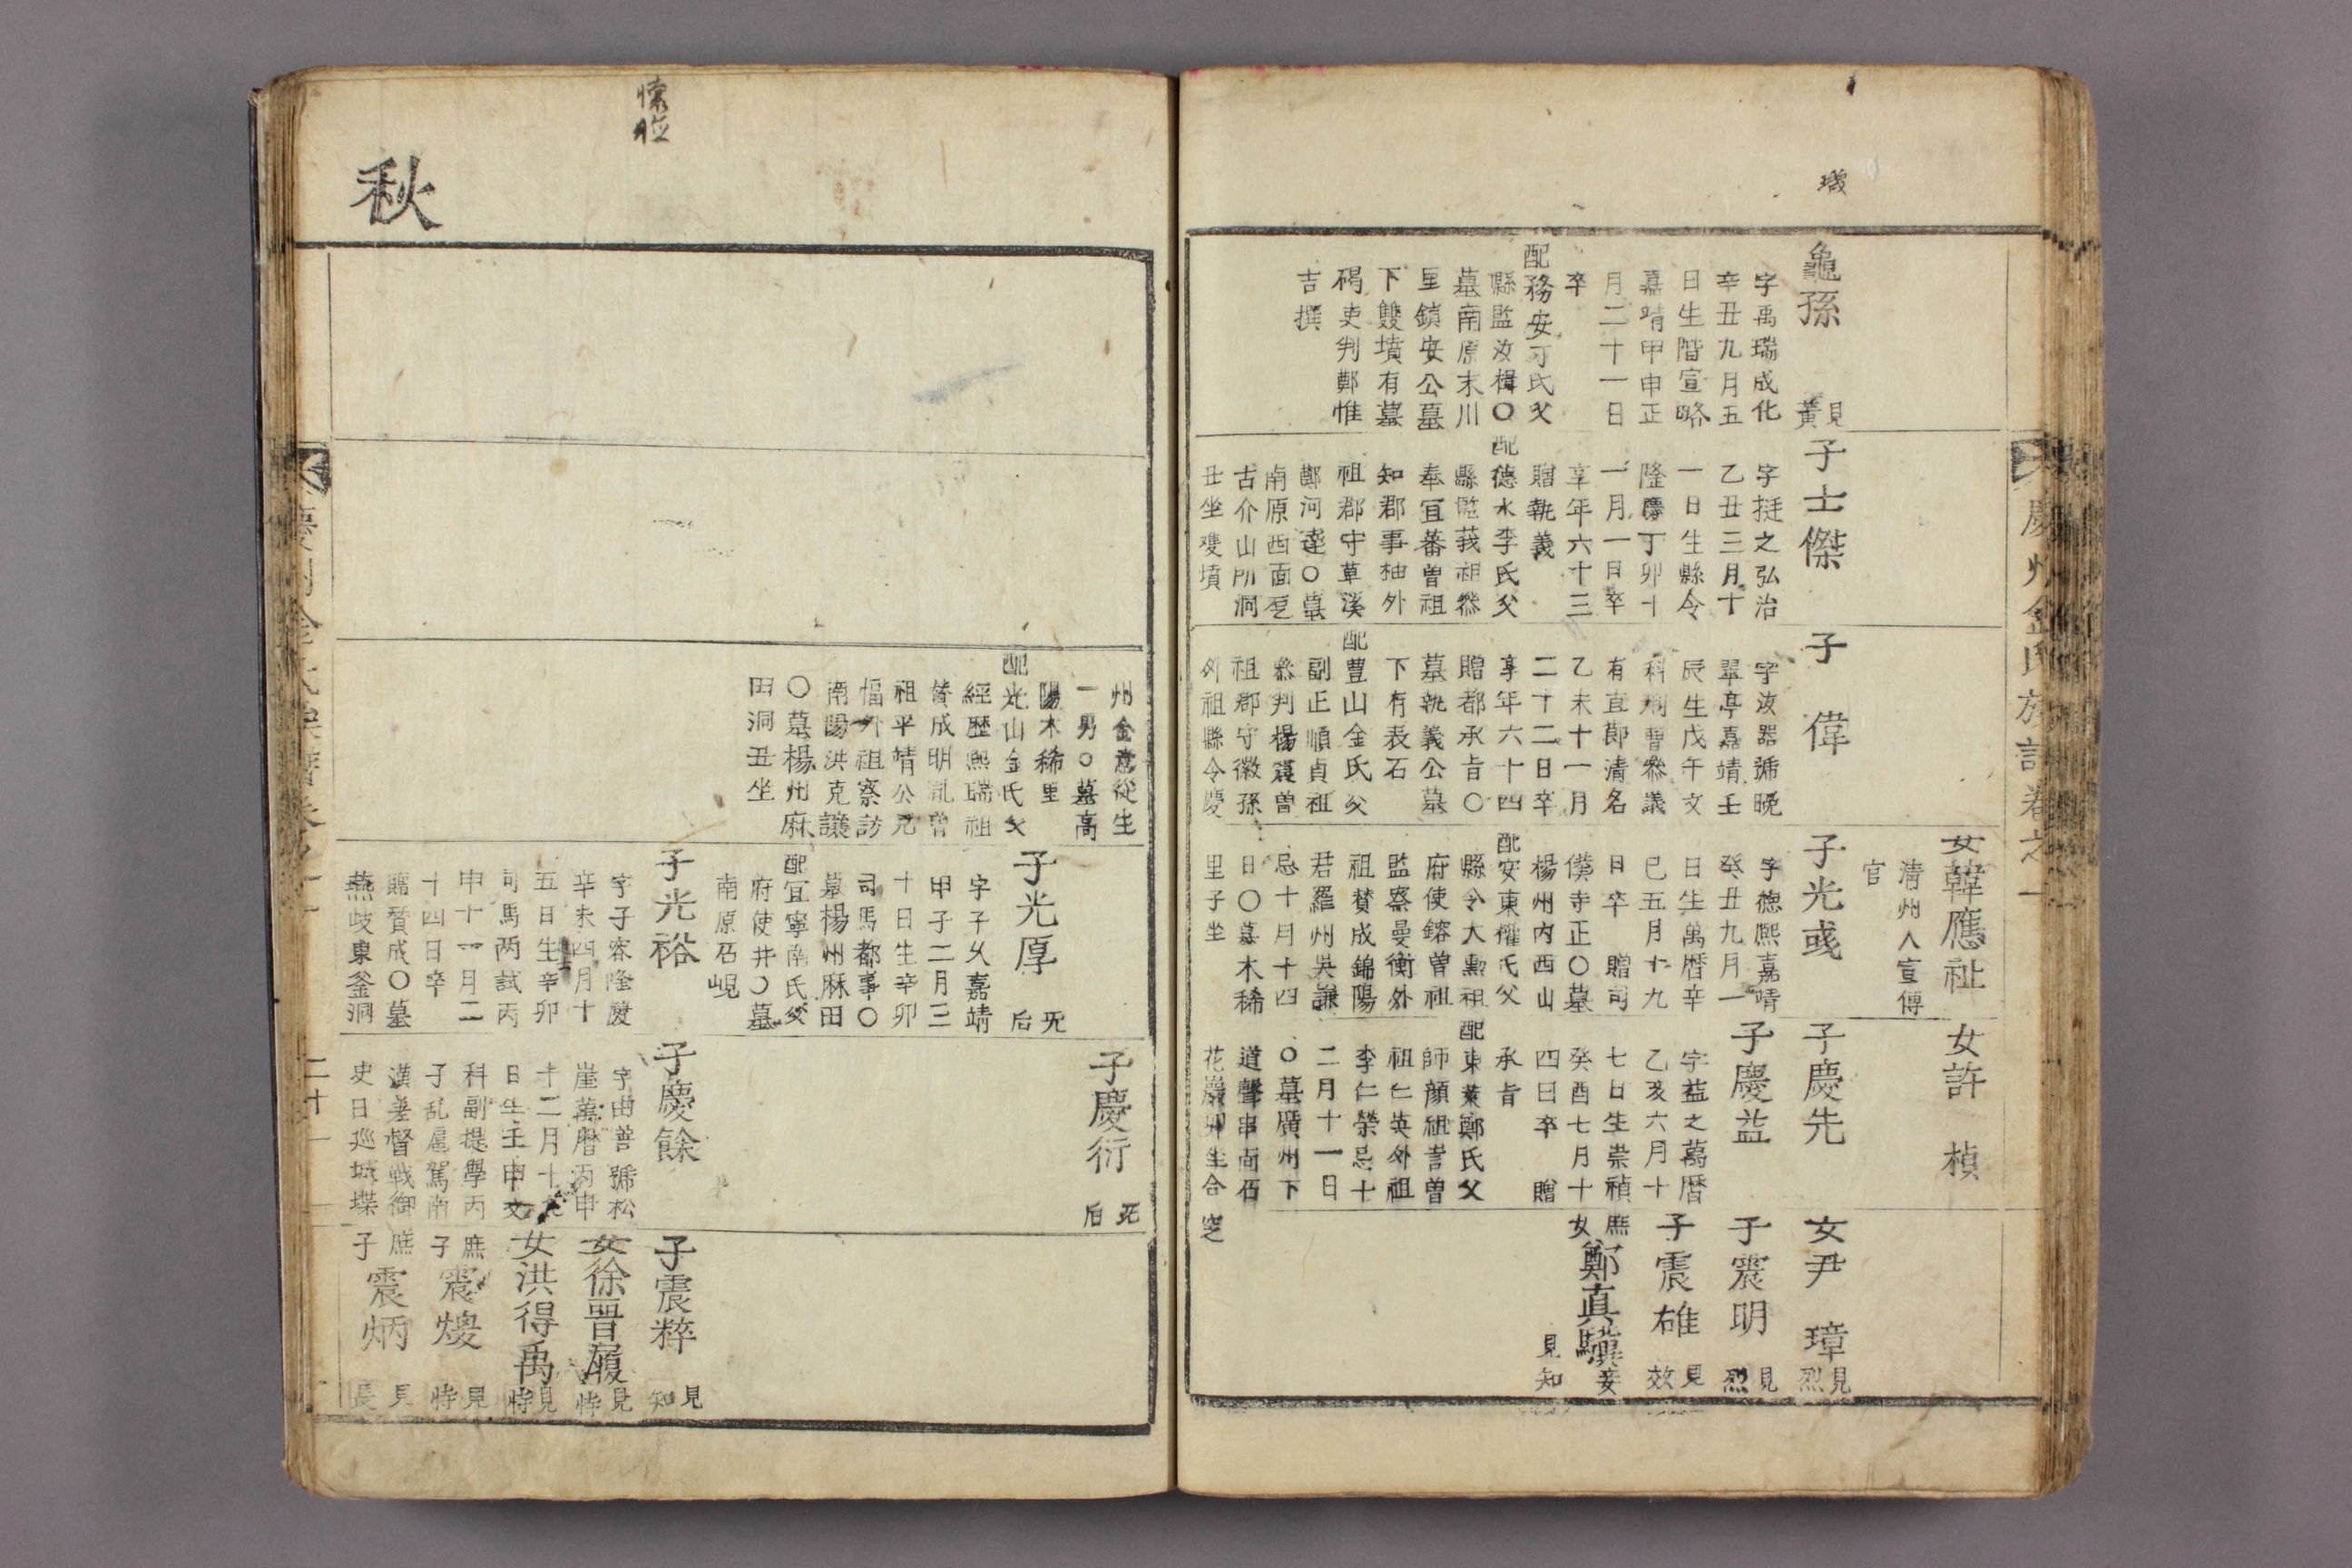 璣
龜孫
見
黃
字禹瑞成化
辛丑九月五
日生階宣略
嘉靖甲申正
月二十一日
卒
配務安丁氏父
縣監汝楫〇
墓南原末川
里鎮安公墓
下雙墳有墓
碣吏判鄭惟
吉撰
子士傑
字挺之弘治
乙丑三月十
一日生縣令
隆慶丁卯十
一月一日卒
享年六十三
贈執義
配德水李氏父
縣監莪祖叅
奉宜蕃曾祖
知郡事柚外
祖郡守草溪
鄭河達〇墓
南原西面
古介山所洞
丑坐雙墳
子偉
字汝器號晚
翠亭嘉靖壬
辰生戊午文
科刑曹叅議
有直節清名
乙未十一月
二十二日卒
享年六十四
贈都承旨〇
墓執義公墓
下有表石
配豊山金氏父
副正順貞祖
叅判楊震曾
祖郡守徽孫
外祖縣令慶
女韓應祉
清州人宣傳
官
子光彧
字德熙嘉靖
癸丑九月一
日生萬曆辛
巳五月十九
日卒 贈司
僕寺正〇墓
楊州內西山
配安東權氏父
縣令大勳祖
府使鎔曾祖
監察曼衡外
祖賛成錦陽
君羅州吳謙
忌十月十四
日〇墓木稀
里子坐
女許楨
子慶先
子慶益
字益之萬曆
乙亥六月十
七日生崇禎
癸酉七月十
四日卒 贈
承旨
配東萊鄭氏父
師顔祖訔曾
祖仁英外祖
李仁榮忌十
二月十一日
〇墓廣州下
道聲串面石
花巖卯坐合
窆
女尹璋
見
烈
子震明
見
烈
子震雄
見
效
庶女鄭真驥妾
見
知
慶州金氏族譜卷之一
懷
秋
州金意從生
一男〇墓高
陽木稀里
配光山金氏父
經歷熙瑞祖
賛成明胤曾
祖平靖公克
愊外祖察訪
南陽洪克讓
〇墓楊州麻
田洞丑坐
子光厚
无
后
字子久嘉靖
甲子二月三
十日生辛卯
司馬都事〇
墓楊州麻田
配宜寧南氏父
府使井〇墓
南原石峴
子光裕
字子容隆慶
辛未四月十
五日生辛卯
司馬两試丙
申十一月二
十四日卒
贈賛成〇墓
燕岐東釜洞
子慶衍
无
后
子慶餘
字由善號松
崖萬曆丙申
十二月十九
日生壬申文
科副提學丙
子乱扈駕南
漢差督戰御
史日巡城堞
子震粹
見
知
女徐晋履
見
恃
女洪得禹
見
恃
庶子震㷇
見
恃
庶子震炳
見
長
二十一